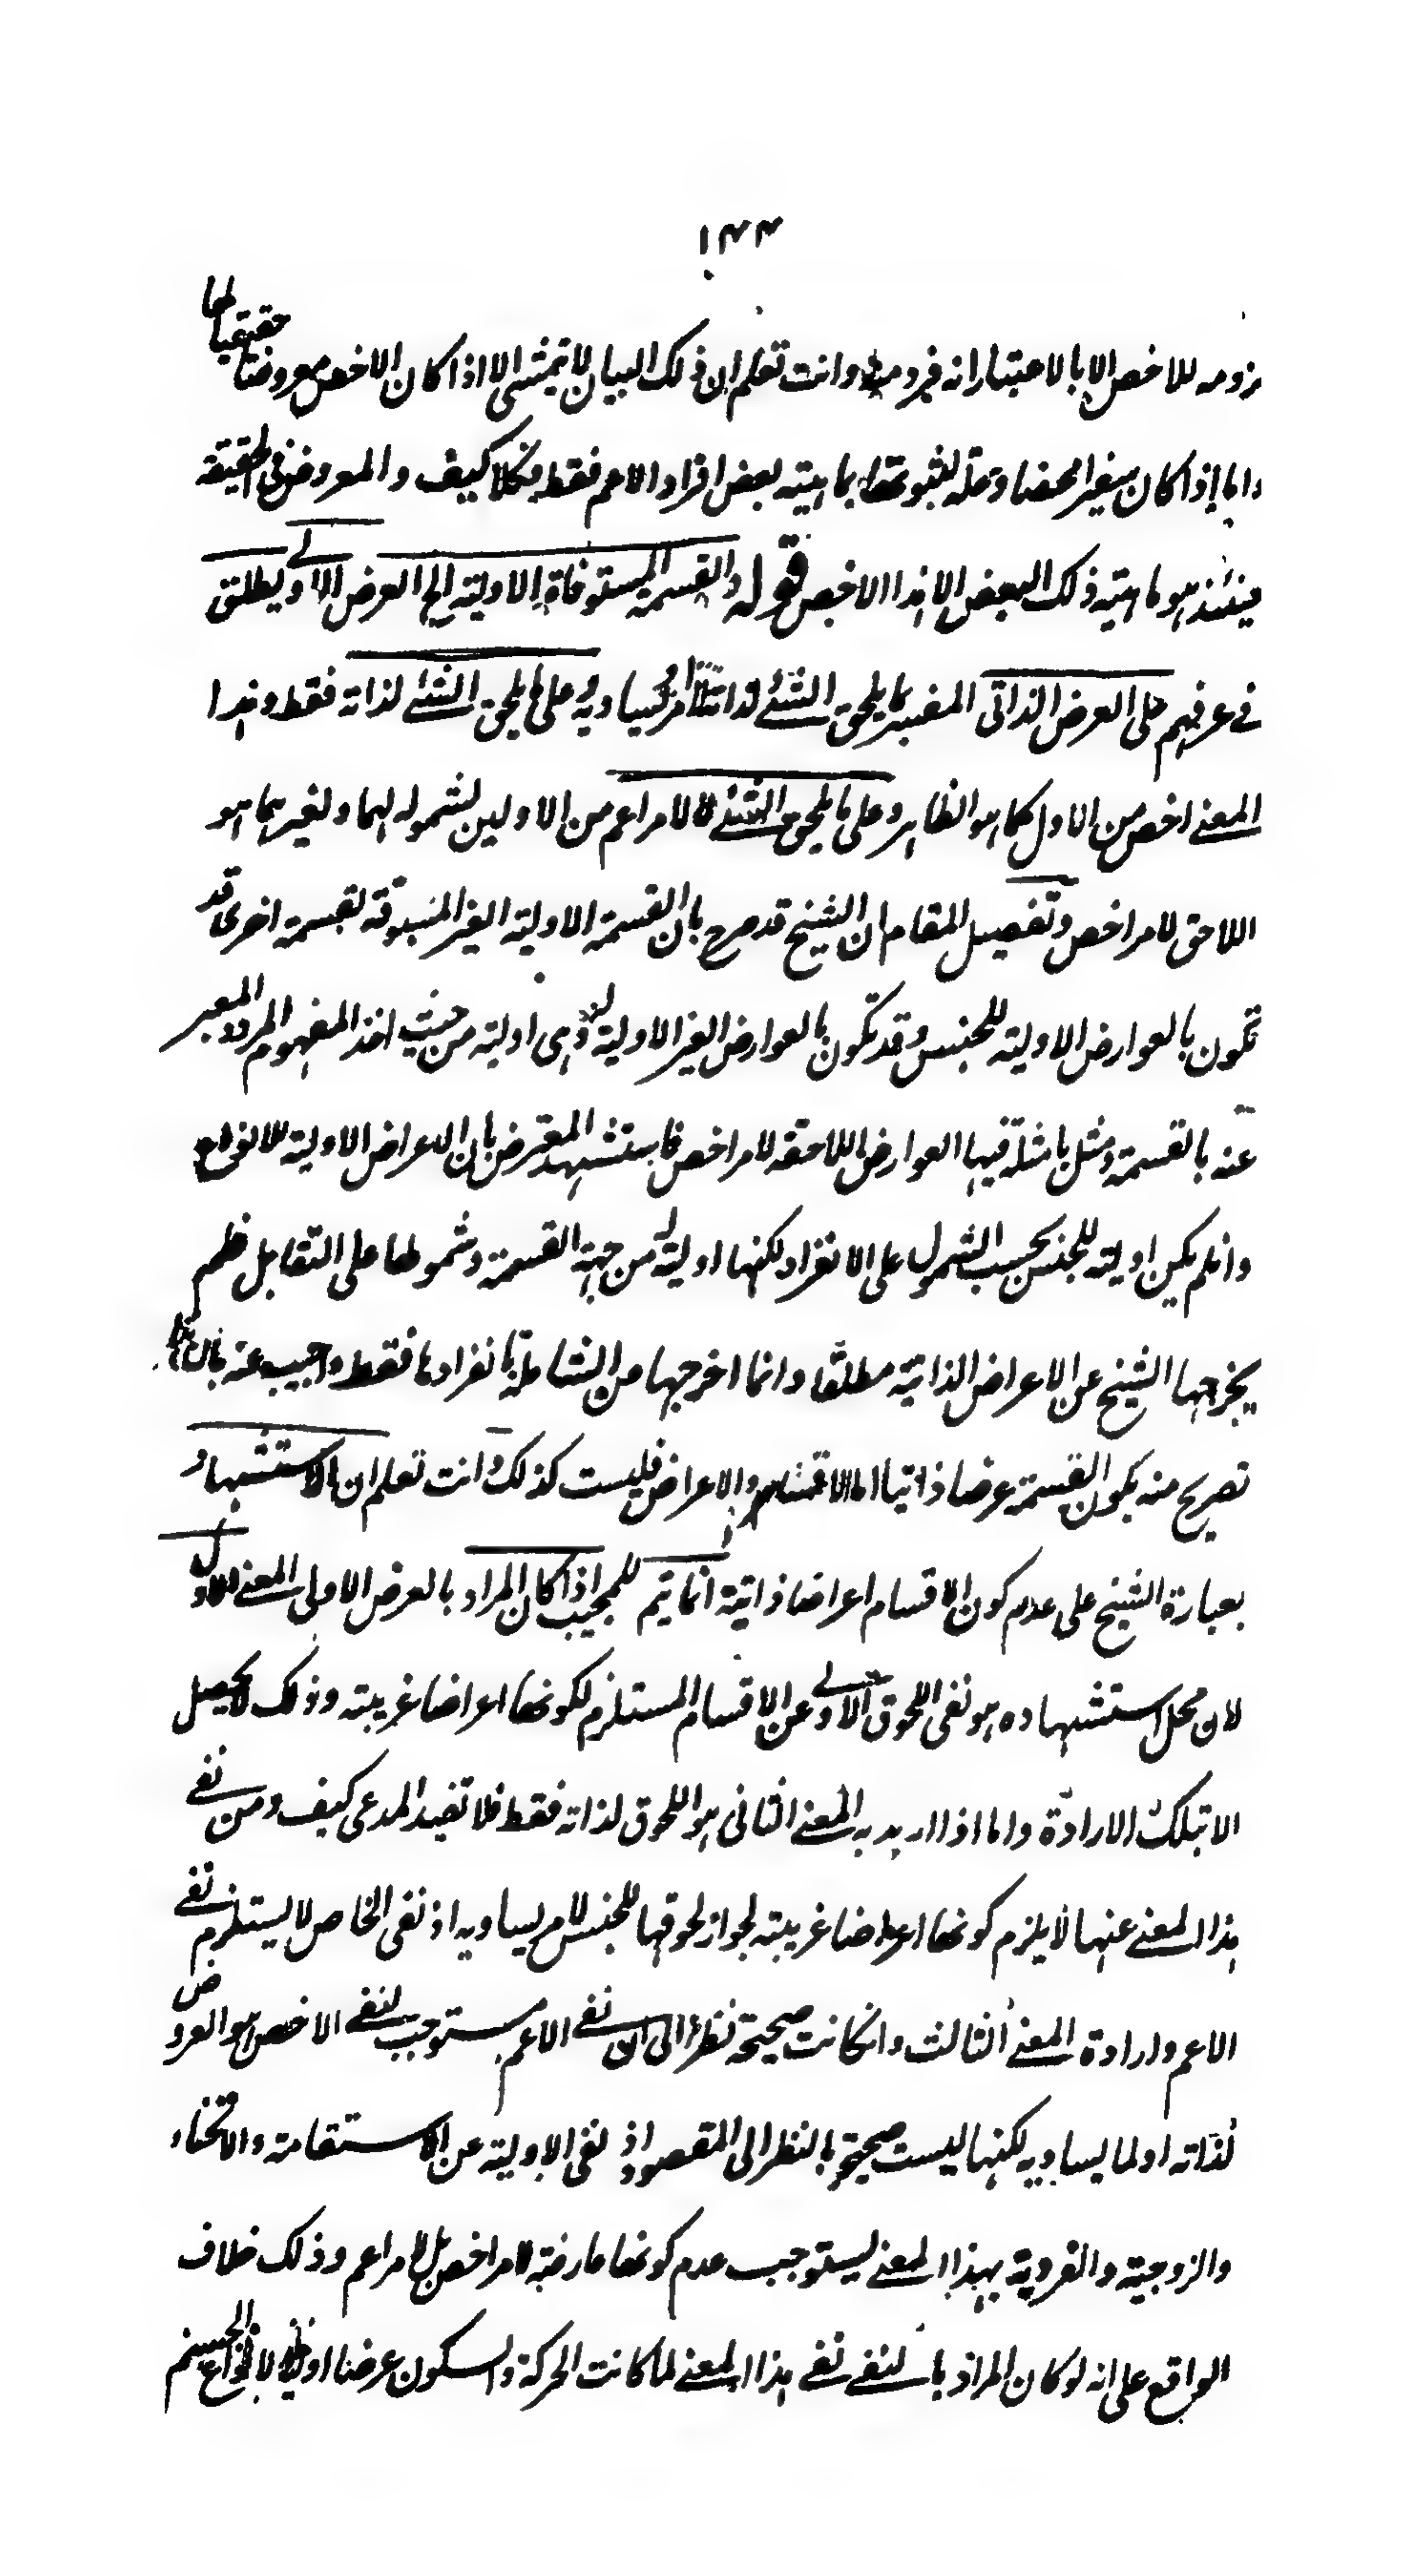 ١٤٤
لزومه للاخص الا بالاعتبار انه فرد منه وانت تعلم ان ذلك البيان لا يتمشى الا اذا كان الاخص معروضا حقيقيا لها
واما إذا كان سفيرا محضا وعلة لثبوتها بماهيته لبعض افراد الاعم فقط فكلا كيف والمعروض فى الحقيقة
حينئذ هو ماهية ذلك البعض الا هذا الاخص قوله والقسمة المستوفاة الاولية الى العرض الاولى ويطلق
فے عرفهم على العرض الذاتى المفسر بما يلحق الشئ لذاته او لامر يساويه وعلى ما يلحق الشئ لذاته فقط وهذا
المعنے اخص من الاول كما هو الظاهر وعلى ما يلحق الشئ لا لامر اعم من الاولين لشموله لهما ولغيرهما هو
اللاحق لامر اخص وتفصيل المقام ان الشيخ قد صرح بان القسمة الاولية الغير المسبوقة لقسمة اخرى قد
تكون بالعوارض الاولية للجنس وقد تكون بالعوارض الغير الاولية له وهى اولية من حيث اخذ المفهوم المردد المعبر
عنه بالقسمة ومثل بامثلة فيها العوارض اللاحقة لامر اخص فاستشهد المعترض بان الاعراض الاولية للانواع
وانلم يكن اولية للجنس بحسب الشمول على الانفراد لكنها اولية له من جهة القسمة وشمولها على التقابل فلم
يخرجها الشيخ عن الاعراض الذاتية مطلقا وانما اخرجها من الشاملة بانفرادها فقط واجيب عنه بان
تصريح منه بكون القسمة عرضا ذاتيا اما الاقسام والاعراض فليست كذلك وانت تعلم ان الاستشهاد
بعبارة الشيخ على عدم كون الاقسام اعراضا ذاتية انما يتم للمجيب اذا كان المراد بالعرض الاولى المعنے الاول
لان محل استشهاده هو نفى اللحوق الاولى عن الاقسام المستلزم لكونها اعراضا غريبة وذلك لا يحصل
الا بتلك الارادة واما اذا اريد به المعنے الثانى هو اللحوق لذاته فقط فلا تفيد المدعى كيف ومن نفے
هذا المعنے عنها لا يلزم كونها اعراضا غريبة لجواز لحوقها للجنس لامر يساويه اذ نفى الخاص لا يستلزم نفے
الاعم وارادة المعنے الثالث وانكانت صحيحة نظرا الى ان نفے الاعم يستوجب لنفے الاخص هو العروض
لذاته او لما يساويه لكنها ليست صحيحة بالنظر الى المقصود اذ نفى الاولية عن الاستقامة والانحناء
والزوجية والفردية بهذا المعنے يستوجب عدم كونها عارضة لامر اخص بل لامر اعم وذلك خلاف
الواقع على انه لو كان المراد بالنفے نفے هذا المعنے لما كانت الحركة والسكون عرضا اوليا لانواع الجسم